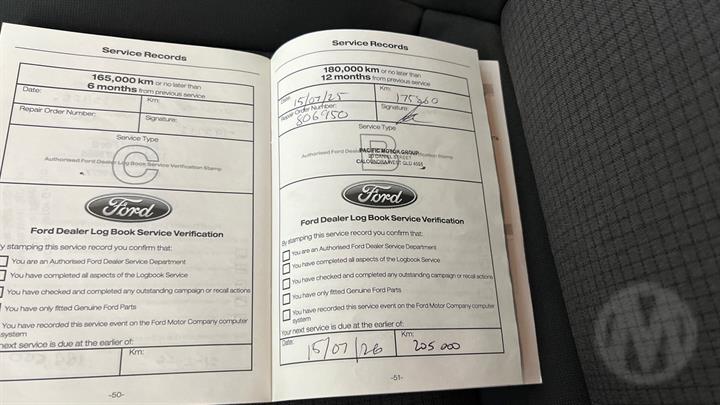 Service Records
165,000 km or no later than
6 months from previous service
Date:
Km:
Repair Order Number:
Signature:
Service Type
C
Authorised Ford Dealer Log Book Service Verification Stamp
Ford
Ford Dealer Log Book Service Verification
y stamping this service record you confirm that:
You are an Authorised Ford Dealer Service Department
You have completed all aspects of the Logbook Service
You have checked and completed any outstanding campaign or recall actions
You have only fitted Genuine Ford Parts
You have recorded this service event on the Ford Motor Company computer
system
next service is due at the earlier of:
Km:
-50-
Service Records
180,000 km or no later than
12 months from previous service
Date: 15/07/25
Km: 175260
Repair Order Number: 806950
Signature:
Service Type
B
Authorised Ford Dealer
PACIFIC MOTOR GROUP
CALOUNDRA WEST QLD 4551
Verification Stamp
Ford
Ford Dealer Log Book Service Verification
By stamping this service record you confirm that:
You are an Authorised Ford Dealer Service Department
You have completed all aspects of the Logbook Service
You have checked and completed any outstanding campaign or recall actions
You have only fitted Genuine Ford Parts
You have recorded this service event on the Ford Motor Company computer
system
Your next service is due at the earlier of:
Date: 15/07/26
Km: 205 000
-51-
M